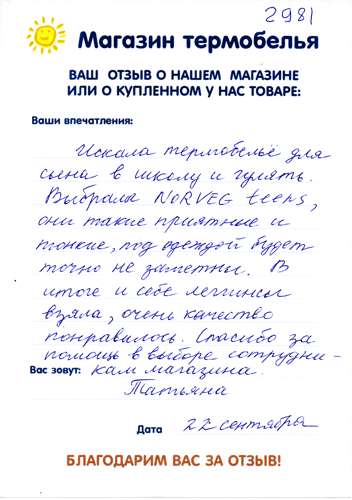 2981
Магазин термобелья
ВАШ ОТЗЫВ О НАШЕМ МАГАЗИНЕ
ИЛИ О КУПЛЕННОМ У НАС ТОВАРЕ:
Ваши впечатления:
Искала термобельё для
сына в школу и гулять.
Выбрала NORVEG teens,
они такие приятные и
тонкие, под одеждой будет
точно не заметны. В
итоге и себе леггинсы
взяла, очень качество
понравилось. Спасибо за
помощь в выборе сотрудни-
Вас зовут: кам магазина.
Татьяна
Дата 22 сентября
БЛАГОДАРИМ ВАС ЗА ОТЗЫВ!